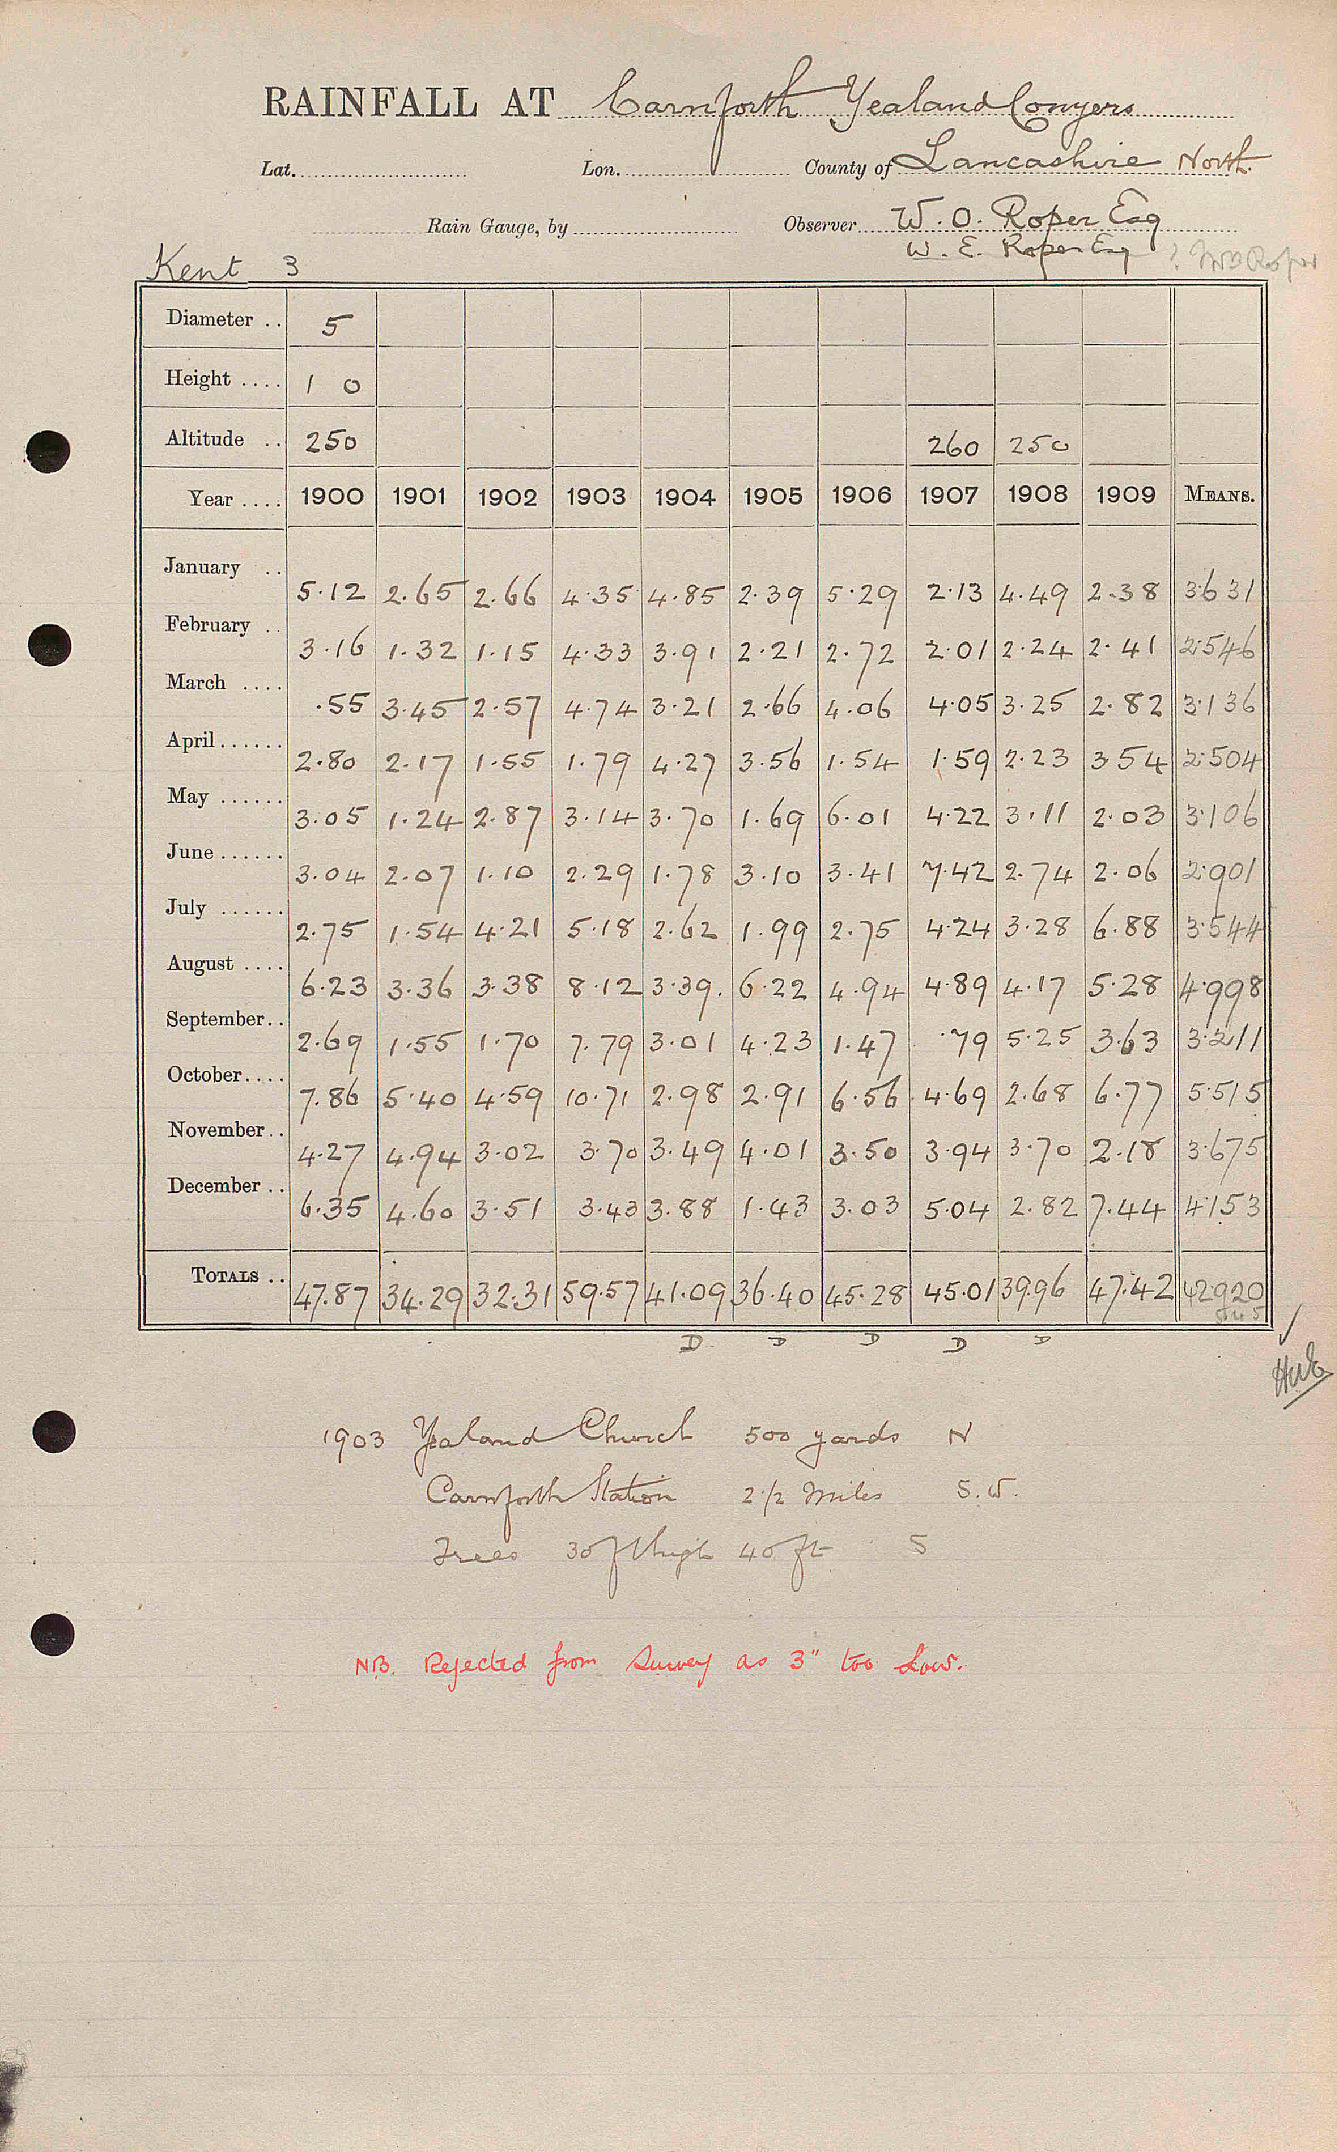 RAINFALL AT Carnforth Yealand Conyers
Lat. Lon. County of Lancashire North.
Rain Gauge, by Observer W. O. Roper Esq
W. E. Roper Esq
Kent 3
Diameter .. 5
Height .... 1 0
Altitude .. 250 260 250
Year .... 1900 1901 1902 1903 1904 1905 1906 1907 1908 1909 MEANS.
January .. 5.12 2.65 2.66 4.35 4.85 2.39 5.29 2.13 4.49 2.38 3.631
February .. 3.16 1.32 1.15 4.33 3.91 2.21 2.72 2.01 2.24 2.41 2.546
March .... .55 3.45 2.57 4.74 3.21 2.66 4.06 4.05 3.25 2.82 3.136
April ...... 2.80 2.17 1.55 1.79 4.27 3.56 1.54 1.59 2.23 3 54 2.504
May ...... 3.05 1.24 2.87 3.14 3.70 1.69 6.01 4.22 3.11 2.03 3.106
June ...... 3.04 2.07 1.10 2.29 1.78 3.10 3.41 7.42 2.74 2.06 2.901
July ...... 2.75 1.54 4.21 5.18 2.62 1.99 2.75 4.24 3.28 6.88 3.544
August .... 6.23 3.36 3.38 8.12 3.39. 6.22 4.94 4.89 4.17 5.28 4.998
September .. 2.69 1.55 1.70 7.79 3.01 4.23 1.47 .79 5.25 3.63 3.211
October .... 7.86 5.40 4.59 10.71 2.98 2.91 6.56 4.69 2.68 6.77 5.515
November .. 4.27 4.94 3.02 3.70 3.49 4.01 3.50 3.94 3.70 2.18 3.675
December .. 6.35 4.60 3.51 3.43 3.88 1.43 3.03 5.04 2.82 7.44 4.153
TOTALS .. 47.87 34.29 32.31 59.57 41.09 36.40 45.28 45.01 39.96 47.42 42.920
D D D D D
1903 Yealand Church 500 yards N
Carnforth Station 2 1/2 Miles S.W.
Trees 30 ft high 40 ft S
NB. Rejected from Survey as 3" too low.